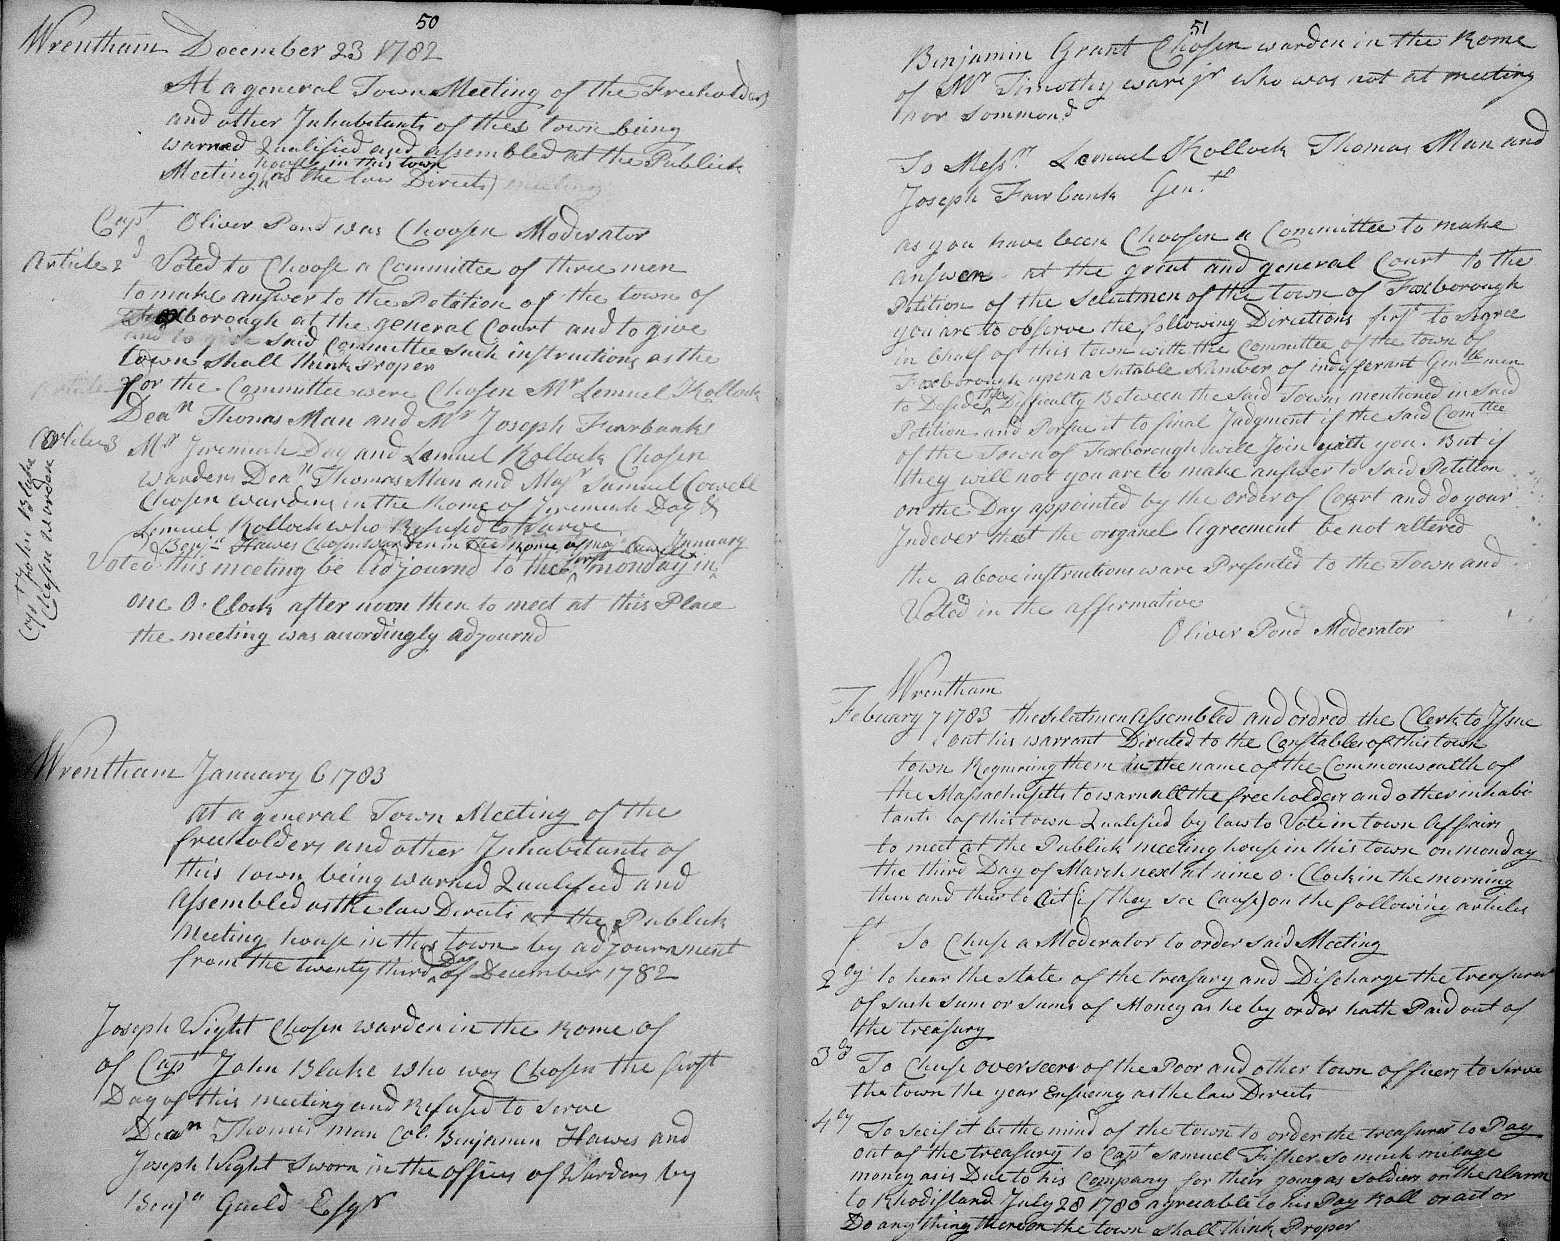 50
Wrentham December 23 1782
At a general Town Meeting of the Freeholders
and other Inhabitants of this town being
warned Qualified and assembled at the Publick
house in this town
Meeting (as the law Directs) meeting
Capt Oliver Pond was Choosen Moderator
Article 2d Voted to Choose a Committee of three men
to make answer to the Petition of the town of
Foxborough at the general Court and to give
and to give said Committee such instructions as the
town shall think Proper
Article
for the Committee were Chosen Mr Lemuel Kollock
Dean Thomas Man and Mr Joseph Fairbanks
Article 3 Mr Jeremiah Day and Lemuel Kollock Chosen
wardens Dean Thomas Man and Majr Samuel Cowell
Chosen wardens in the Rome of Jeremiah Day &
Lemuel Kollock who Refused to Sarve
Benjn Hawes Chosen warden in the Rome of Majr Cowell
Capt John Blake
Chosen warden
first January
Voted this meeting be Adjournd to the monday in
one O. Clock after noon then to meet at this Place
the meeting was acordingly adjournd
Wrentham January 6 1783
at a general Town Meeting of the
freeholders and other Inhabitants of
this town being warned Qualified and
Assembled as the law Directs at the Publick
Meeting house in this town by adjournment
from the twenty third Day of December 1782
Joseph Wight Chosen warden in the Rome of
of Capt John Blake who was Chosen the first
Day of this meeting and Refused to serve
Dean Thomas man Col. Binjamin Hawes and
Joseph Wight Sworn in the offices of Wardens by
Benjn Guild Esqr
51
Binjamin Grant Chosen warden in the Rome
of Mr Timothy ware jr who was not at meeting
nor Sommond
To Messrs Lemuel Kollock Thomas Man and
Joseph Fairbank Gentn
as you have been Choosen a Committee to make
answer at the great and general Court to the
Petition of the Selectmen of the town of Foxborough
you are to observe the following Directions first to Agree
in behalf of this town with the Committee of the town of
Foxborough upon a Sutable Number of indifferant Gentlemen
to Deside the Difficulty Between the Said Towns mentioned in Said
Petition and Persue it to final Judgment if the Said Comttee
of the Town of Foxborough will Join with you. But if
they will not you are to make answer to Said Petition
on the Day appointed by the order of Court and do your
Indever that the origanel Agreement be not altered
the above instructions ware Presented to the Town and
Voted in the affermative
Oliver Pond Moderator
Wrentham
Febuary 7 1783 the Selectmen Assembled and ordred the Clerk to Issue
out his warrant Directed to the Constables of this town
town Requireing them in the name of the Commonwealth of
the Massachusetts to warn all the freeholders and other inhabi
tants of this town Qualified by law to Vote in town Affairs
to meet at the Publick meeting house in this town on monday
the third Day of March next at nine o. Clock in the morning
then and their to Act (if they see Cause) on the following articles
1st To Chuse a Moderator to order said Meeting
2ly to hear the state of the treasury and Discharge the treasurer
of such Sum or Sums of Money as he by order hath Paid out of
the treasury
3dly To Chuse overseers of the Poor and other town officers to Serve
the town the year Ensueing as the law Directs
4ly To see if it be the mind of the town to order the treasurer to Pay
out of the treasury to Capt Samuel Fisher so much milage
money as is Due to his Company for their going as Soldiers on the alarm
to Rhodisland July 28 1780 agreeable to his Pay Roll or act or
Do any thing thereon the town shall think Proper